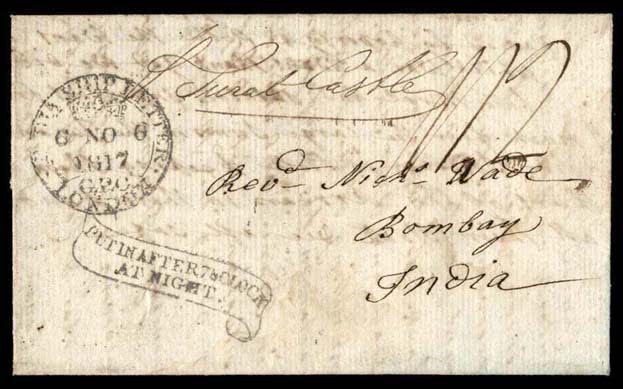 Surat Castle
INDIA SHIP LETTER
6 NO 6
1817
G.P.O
LONDON
Revd. Nichs. Wade
Bombay
India
PUT IN AFTER 7 o CLOCK
AT NIGHT.